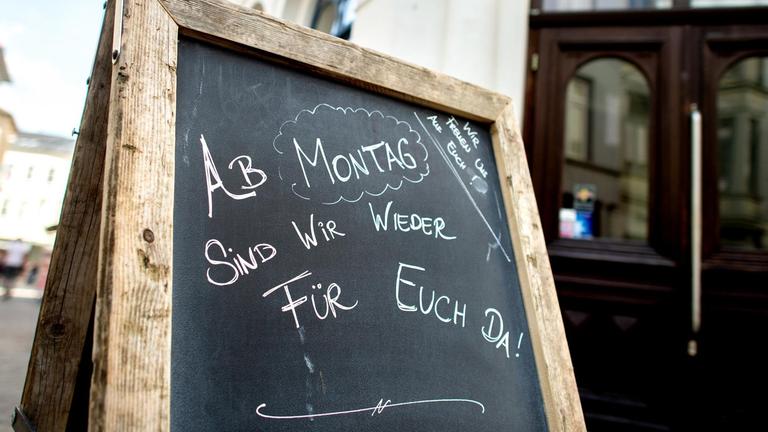 Ab MONTAG
SIND WIR WIEDER
FÜR EUCH DA!
WIR
FREUEN UNS
AUF EUCH!